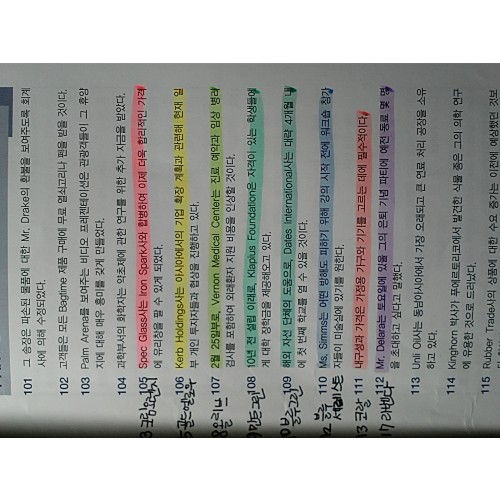 101 그 송장은 파손된 물품에 대한 Mr. Drake의 환불을 보여주도록 회계
사에 의해 수정되었다.
102 고객들은 모든 Bagline 제품 구매에 무료 열쇠고리나 펜을 받을 것이다.
103 Palm Arena를 보여주는 비디오 프레젠테이션은 관광객들이 그 휴양
지에 대해 매우 흥미를 갖게 만들었다.
104 과학부서의 화학자는 약초제에 관한 연구를 위한 추가 자금을 받았다.
105 Spec Glass사는 Iron Spark사와 합병하여 이제 더욱 합리적인 가격
에 유리창을 팔 수 있게 되었다.
106 Kerb Holdings사는 아시아에서의 기업 확장 계획과 관련해 현재 일
부 개인 투자자들과 협상을 진행하고 있다.
107 2월 25일부로, Vernon Medical Center는 진료 예약과 임상 병리
검사를 포함하여 외래환자 지원 비용을 인상할 것이다.
108 10년 전 설립 이래로, Klapius Foundation은 자격이 있는 학생들에
게 대학 장학금을 제공해오고 있다.
109 해외 자선 단체의 도움으로, Dates International사는 대략 4개월 내
에 첫 번째 학교를 열 수 있을 것이다.
110 Ms. Simms는 어떤 방해도 피하기 위해 강의 시작 전에 워크숍 참가
자들이 미술실에 있기를 원한다.
111 내구성과 가격은 가정용 가구와 기기를 고르는 데에 필수적이다.
112 Mr. Delera는 토요일에 있을 그의 은퇴 기념 파티에 예전 동료 몇 명
을 초대하고 싶다고 말했다.
113 Unli Oil사는 동남아시아에서 가장 오래되고 큰 연료 처리 공장을 소유
하고 있다.
114 Kinghorn 박사가 푸에르토리코에서 발견한 식물 종은 그의 의학 연구
에 유용한 것으로 드러났다.
115 Rubber Trade사의 상품에 대한 수요 증가는 이전에 예상했던 것보
9 민트그린
블루그린
12 블루
13 코랄
17 라벤더